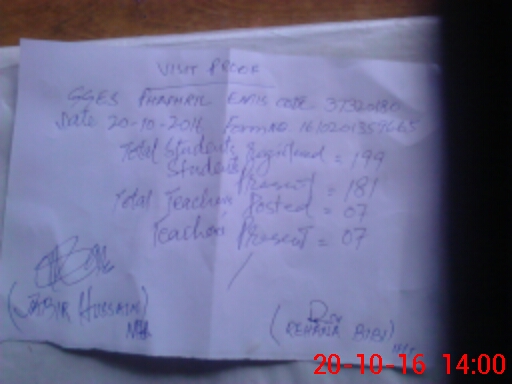 VISIT PROOF
GGES PHAPHRIL EMIS CODE 37320180
Date 20-10-2016 Form NO 1610201359665
Total Students Registered = 199
Students Present = 181
Total Teachers Posted = 07
Teachers Present = 07
(JABIR HUSSAIN)
(REHANA BIBI)
20-10-16 14:00